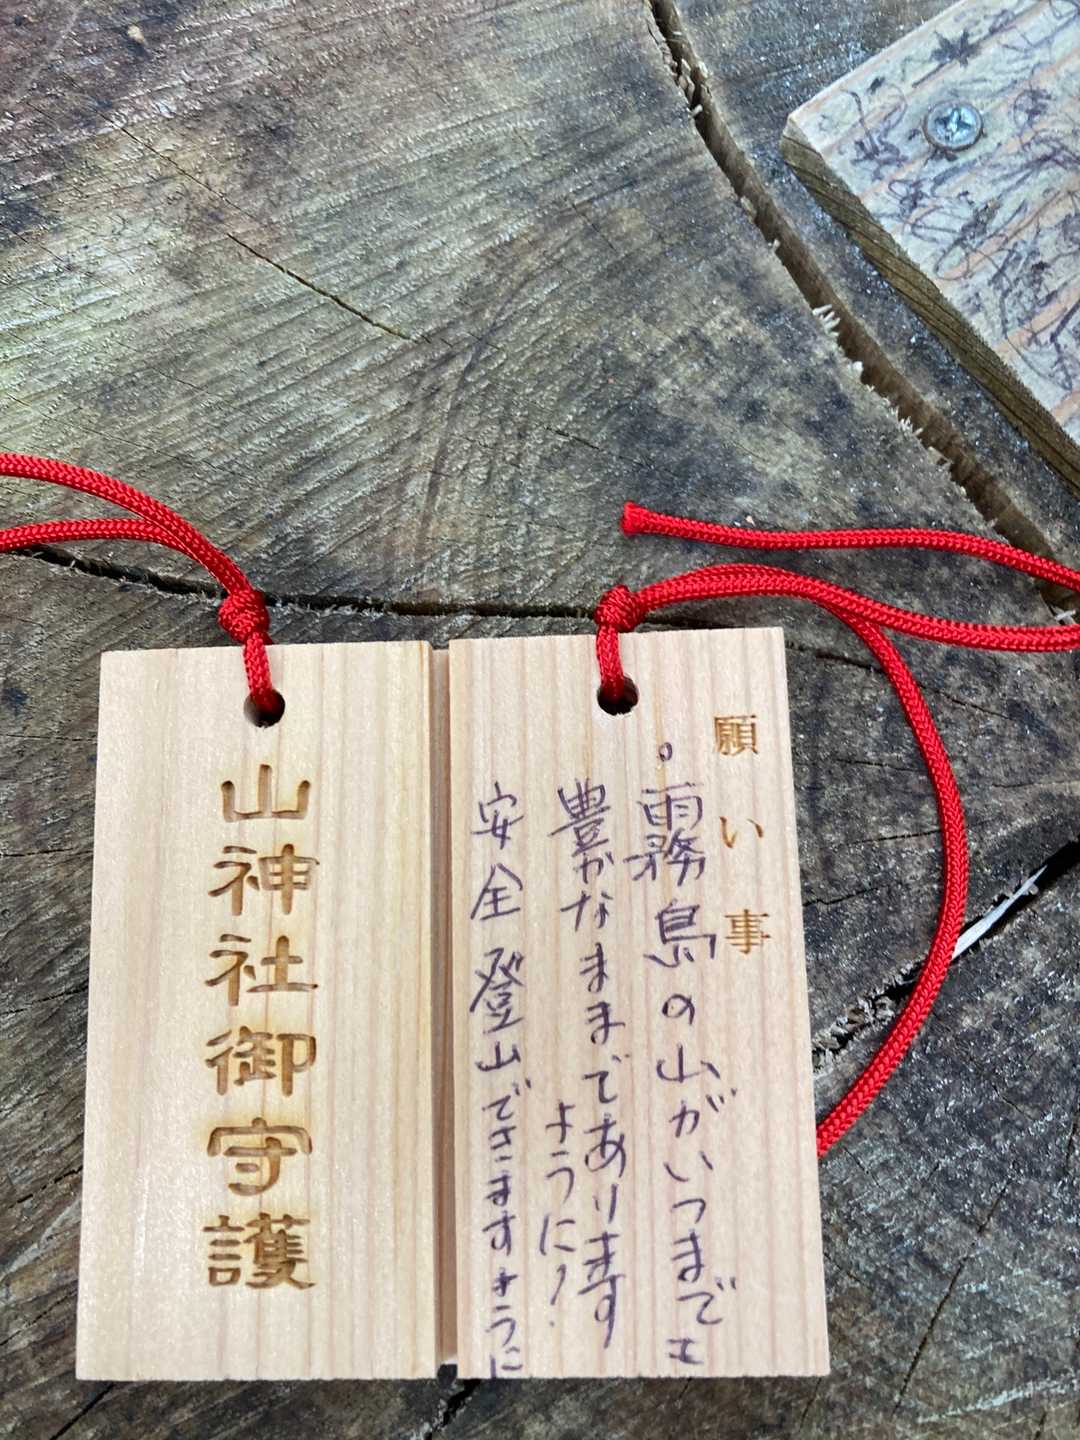 山神社御守護
願い事
。霧島の山がいつまでも
豊かなままであります
ように!
安全登山できますように